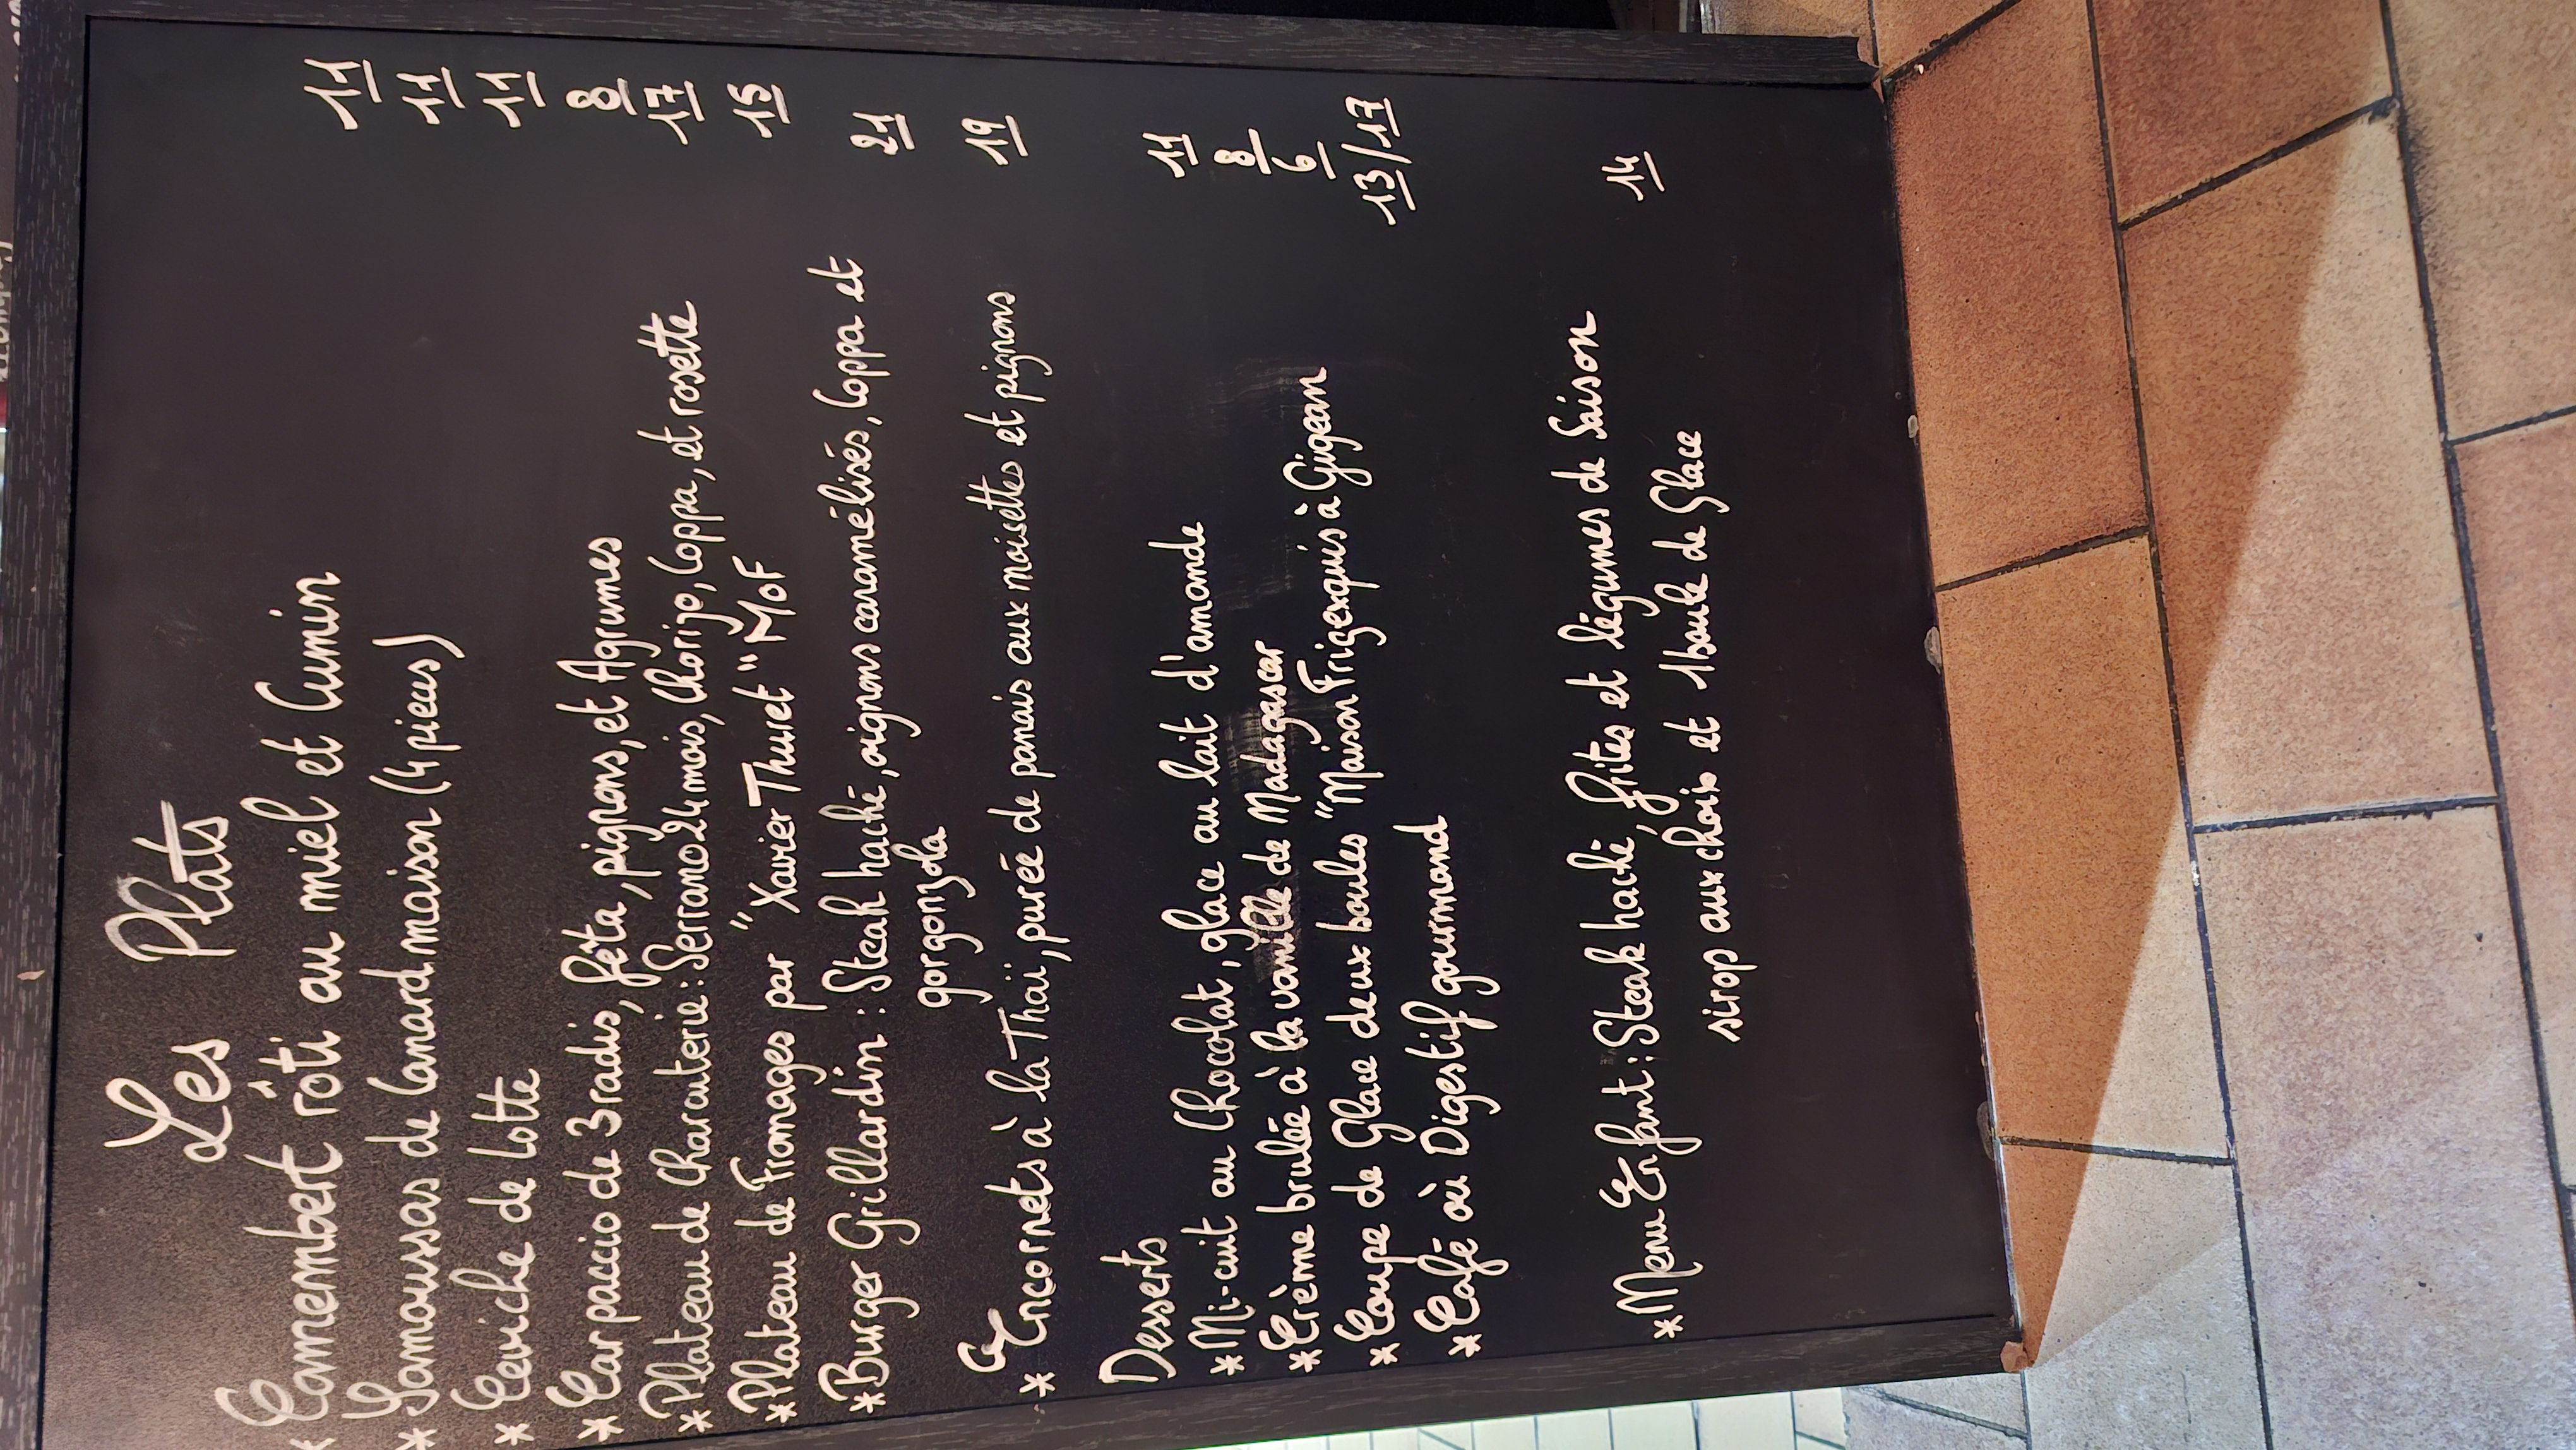 Les Plats
* Camembert rôti au miel et Cumin 11
* Samoussas de Canard maison (4 pieces) 11
* Ceviche de Lotte 11
* Carpaccio de 3 radis, fêta, pignons, et Agrumes 8
* Plateau de Charcuterie : Serrano 24 mois, Chorizo, Coppa, et rosette 17
* Plateau de Fromages par "Xavier Thuret" MOF 15
* Burger Grillardin : Steak haché, oignons caramélisés, Coppa et 21
gorgonzola
* Encornets à la Thaï, purée de panais aux noisettes et pignons 19
Desserts
* Mi-cuit au Chocolat, glace au lait d'amande 11
* Crème brulée à la vanille de Madagascar 8
* Coupe de Glace deux boules "Maison Frigexquis à Gigean 6
* Café où Digestif gourmand 13/17
* Menu Enfant : Steak haché, frites et légumes de Saison 14
sirop aux choix et 1 boule de Glace